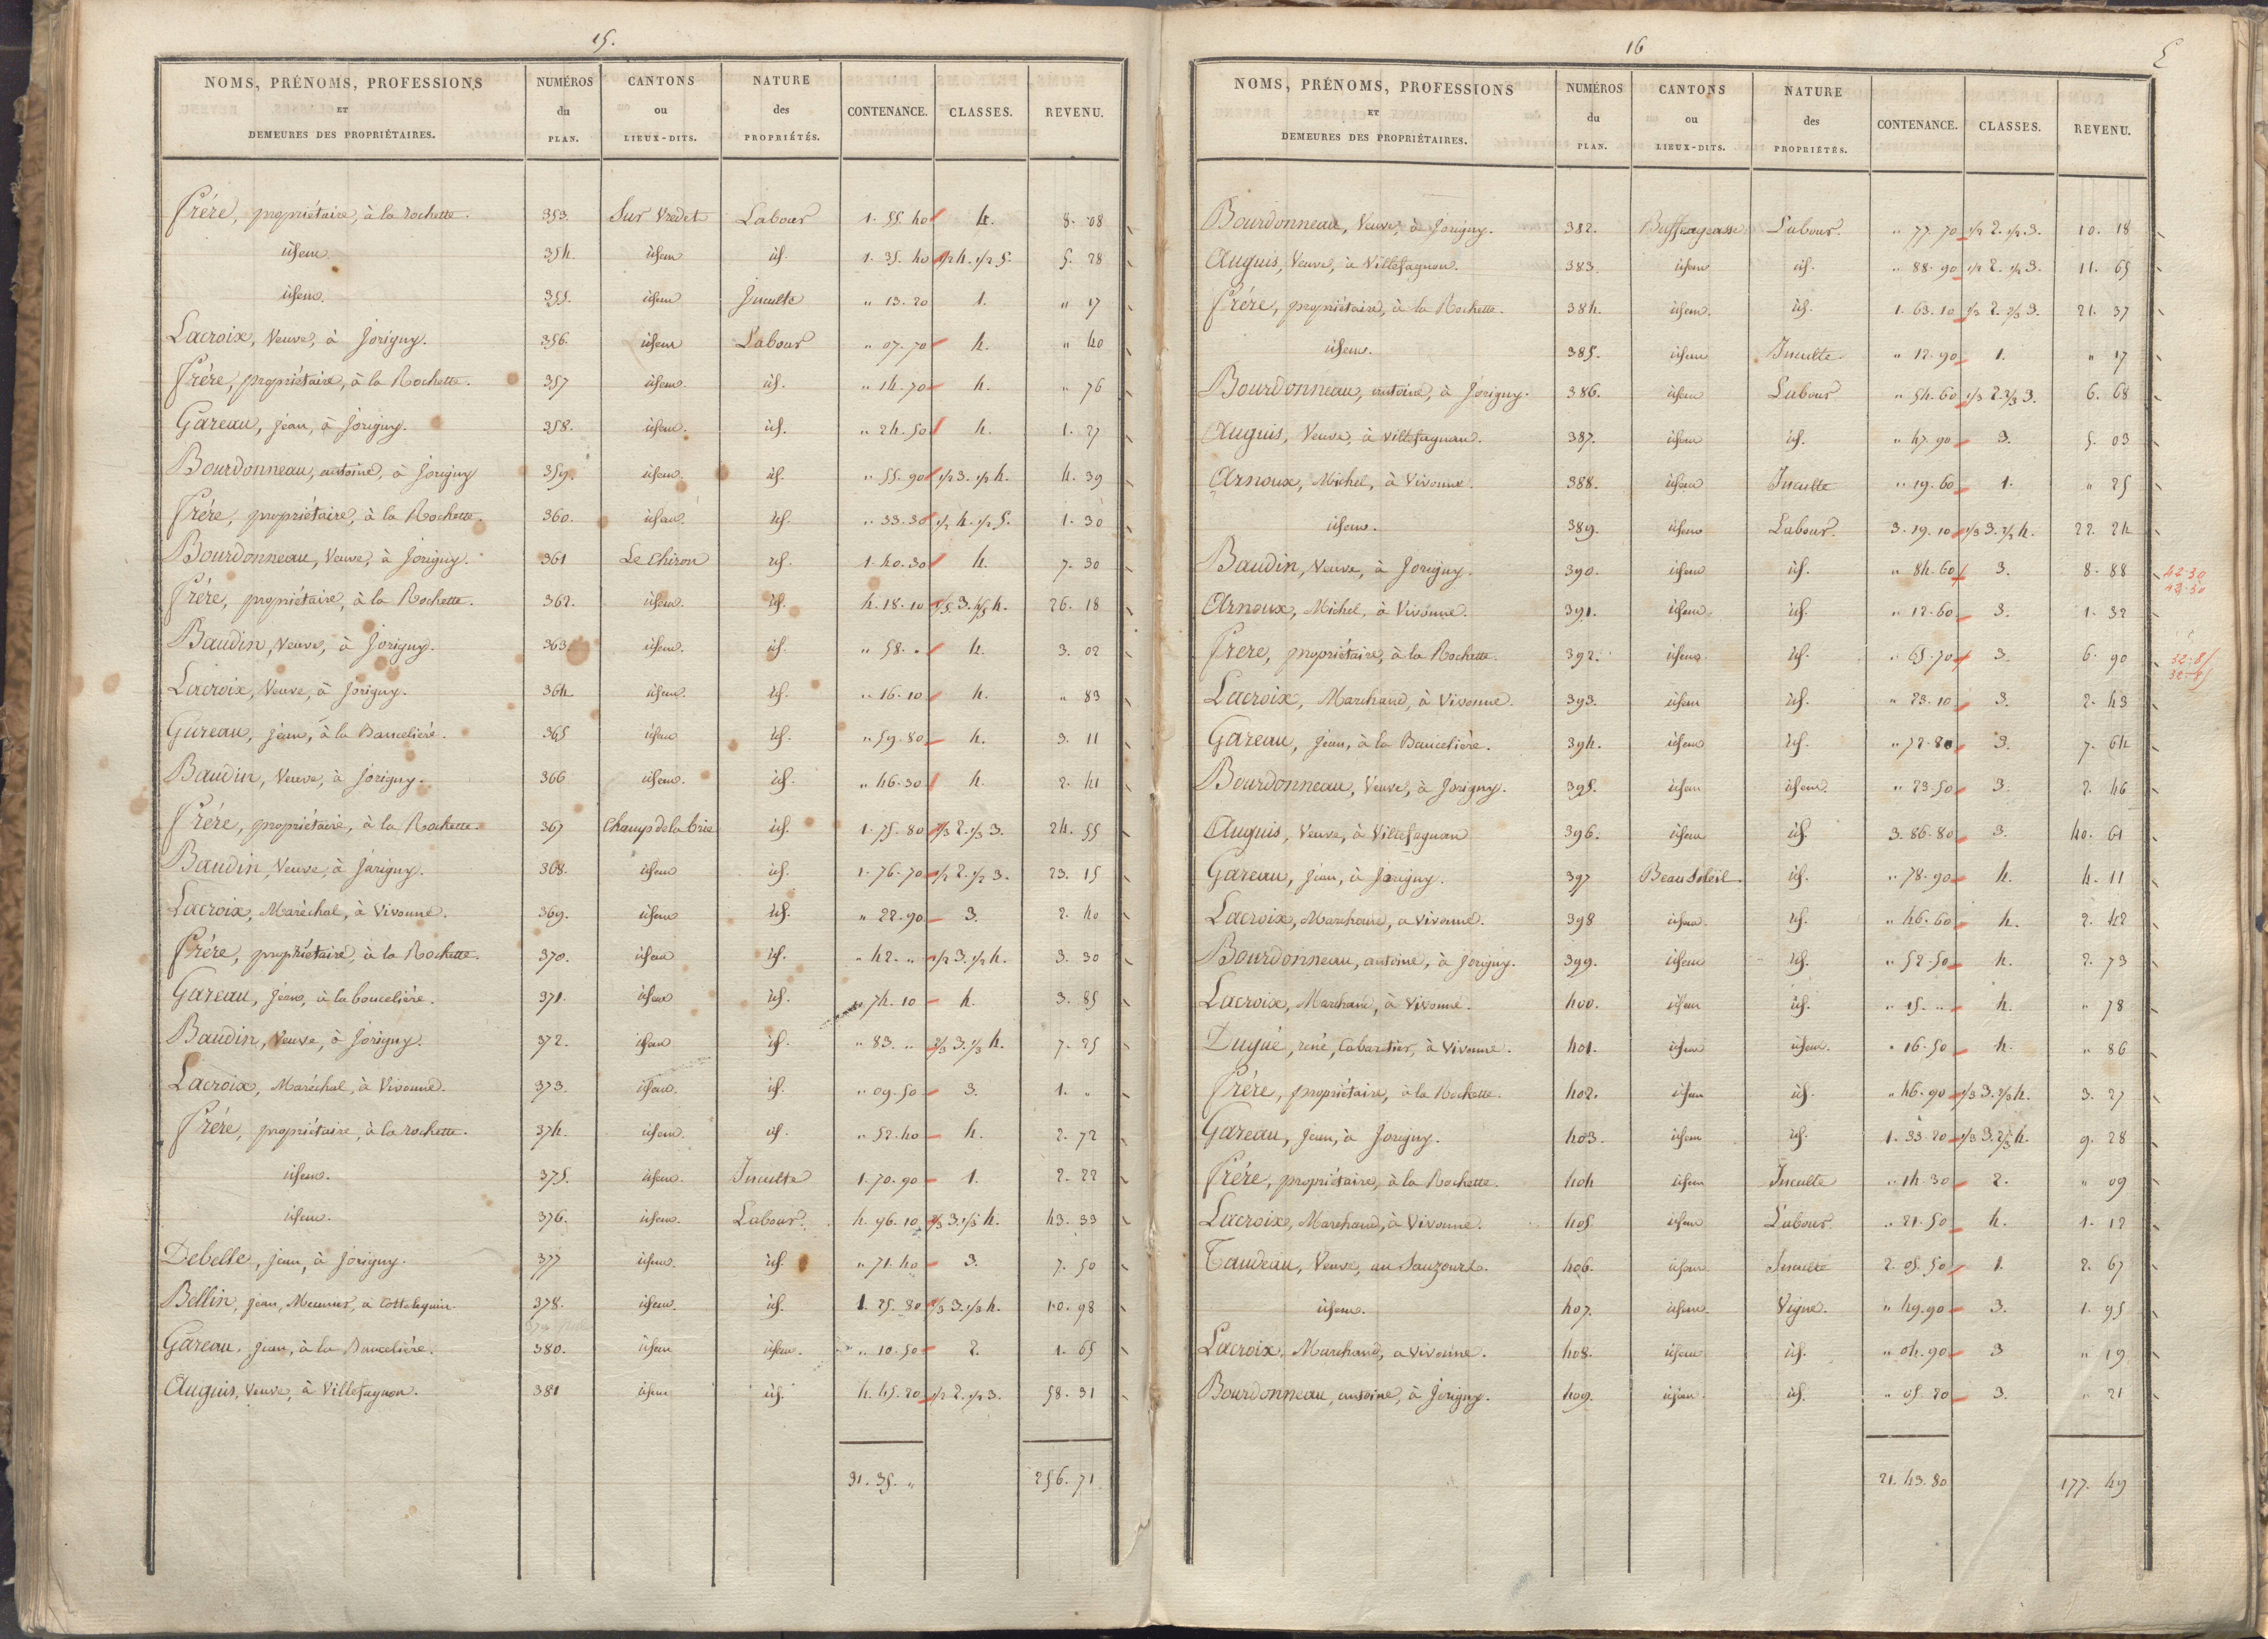 15.
NOMS, PRÉNOMS, PROFESSIONS ET DEMEURES DES PROPRIÉTAIRES. NUMÉROS du PLAN. CANTONS ou LIEUX-DITS. NATURE des PROPRIÉTÉS. CONTENANCE. CLASSES. REVENU.
Frére, propriétaire, à la rochette. 353. Sur Vredet Labour 1. 55. 40 4. 8. 08
idem. 354. idem id. 1. 35. 40 1/2 4. 1/2 5. 5. 28
idem. 355. idem Inculte " 13. 20 1. " 17
Lacroix, Veuve, à Jorigny. 356. idem Labour " 07. 70 4. " 40
Frére, propriétaire, à la Rochette. 357 idem id. " 14. 70 4. " 76
Gareau, jean, à Jorigny. 358. idem. id. " 24. 50 4. 1. 27
Bourdonneau, antoine, à Jorigny 359. idem id. " 55. 90 1/2 3. 1/2 4. 4. 39
Frére, propriétaire, à la Rochette. 360. idem. id. " 33. 30 1/2 4. 1/2 5. 1. 30
Bourdonneau, Veuve, à Jorigny. 361 Le Chiron id. 1. 40. 30 4. 7. 30
Frére, propriétaire, à la Rochette. 362. idem. id. 4. 18. 10 1/5 3. 4/5 4. 26. 18
Baudin, Veuve, à Jorigny. 363. idem. id. " 58. " 4. 3. 02
Lacroix, Veuve, à Jorigny. 364. idem. id. " 16. 10 4. " 83
Gareau, jean, à la Bancelière. 365 idem id. " 59. 80 4. 3. 11
Baudin, Veuve, à Jorigny. 366 idem. id. " 46. 30 4. 2. 41
Frére, propriétaire, à la Rochette. 367 Champ de la Crie id. 1. 75. 80 2/3 2. 1/3 3. 24. 55
Baudin, Veuve, à Jorigny. 368. idem id. 1. 76. 70 1/2 2. 1/2 3. 23. 15
Lacroix, Maréchal, à Vivonne. 369. idem id. " 22. 90 3. 2. 40
Frére, propriétaire, à la Rochette. 370. idem id. " 42. " 1/2 3. 1/2 4. 3. 30
Gareau, jean, à la boucelière. 371. idem id. " 74. 10 4. 3. 85
Baudin, Veuve, à Jorigny. 372. idem id. " 83. " 2/3 3. 1/3 4. 7. 25
Lacroix, Maréchal, à Vivonne. 373. idem. id. " 09. 50 3. 1. "
Frére, propriétaire, à la rochette. 374. idem. id. " 52. 40 4. 2. 72
idem. 375. idem. Inculte 1. 70. 90 1. 2. 22
idem. 376. idem. Labour. 4. 96. 10 2/3 3. 1/3 4. 43. 33
Debelle, jean, à Jorigny. 377 idem. id. " 71. 40 3. 7. 50
Bellin, jean, Meunier, à 378. idem. id. 1. 25. 80 2/3 3. 1/3 4. 10. 98
Gareau, jean, à la Bancelière. 380. idem idem. " 10. 50 2. 1. 65
Auguis, Veuve, à Villefagnon. 381 idem id. 4. 45. 20 1/2 2. 1/2 3. 58. 31
31. 35. " 256. 71
16
5
NOMS, PRÉNOMS, PROFESSIONS ET DEMEURES DES PROPRIÉTAIRES. NUMÉROS du PLAN. CANTONS ou LIEUX-DITS. NATURE des PROPRIÉTÉS. CONTENANCE. CLASSES. REVENU.
Bourdonneau, Veuve, à Jorigny. 382. Buffeageasse Labour. " 77. 70 1/2 2. 1/2 3. 10. 18
Auguis, Veuve, à Villefagnon. 383. idem id. " 88. 90 1/2 2. 1/2 3. 11. 65
Frére, propriétaire, à la Rochette. 384. idem. id. 1. 63. 10 1/3 2. 2/3 3. 21. 37
idem. 385. idem Inculte. " 12. 90 1. " 17
Bourdonneau, antoine, à Jorigny. 386. idem Labour " 54. 60 1/3 2. 2/3 3. 6. 68
Auguis, Veuve, à Villefagnan. 387. idem id. " 47. 90 3. 5. 03
Arnoux, Michel, à Vivonne. 388. idem Inculte " 19. 60 1. " 25
idem. 389. idem Labour. 3. 19. 10 1/3 3. 2/3 4. 22. 24
Baudin, Veuve, à Jorigny. 390. idem id. " 84. 60 3. 8. 88 42-30
42-30
Arnoux, Michel, à Vivonne. 391. idem. id. " 12. 60 3. 1. 32
Frére, propriétaire, à la Rochette. 392. idem. id. " 65. 70 3. 6. 90 32-85
32-85
Lacroix, Marchand, à Vivonne. 393. idem id. " 23. 10 3. 2. 43
Gareau, jean, à la Bancelière. 394. idem id. " 72. 80 3. 7. 64
Bourdonneau, Veuve, à Jorigny. 395. idem idem. " 23. 50 3. 2. 46
Auguis, Veuve, à Villefagnan 396. idem id. 3. 86. 80 3. 40. 61
Gareau, jean, à Jorigny. 397 Beau Soleil. id. " 78. 90 4. 4. 11
Lacroix, Marchand, à Vivonne. 398 idem. id. " 46. 60 4. 2. 42
Bourdonneau, antoine, à Jorigny. 399. idem id. " 52. 50 4. 2. 73
Lacroix, Marchand, à Vivonne. 400. idem id. " 15. " 4. " 78
Dugué, rené, Cabartier, à Vivonne. 401. idem idem. " 16. 50 4. " 86
Frére, propriétaire, à la Rochette. 402. idem id. " 46. 90 1/3 3. 2/3 4. 3. 27
Gareau, jean, à Jorigny. 403. idem id. 1. 33. 20 1/3 3. 2/3 4. 9. 28
Frére, propriétaire, à la Rochette. 404 idem Inculte " 14. 30 2. " 09
Lacroix, Marchand, à Vivonne. 405 idem Labour " 21. 50 4. 1. 12
Taudeau, Veuve, au 406. idem Inculte 2. 05. 50 1. 2. 67
idem. 407. idem. Vigne. " 49. 90 3. 1. 95
Lacroix, Marchand, à Vivonne. 408. idem id. " 04. 90 3 " 19
Bourdonneau, antoine, à Jorigny. 409. idem id. " 05. 20 3. " 21
21. 43. 80 177. 49